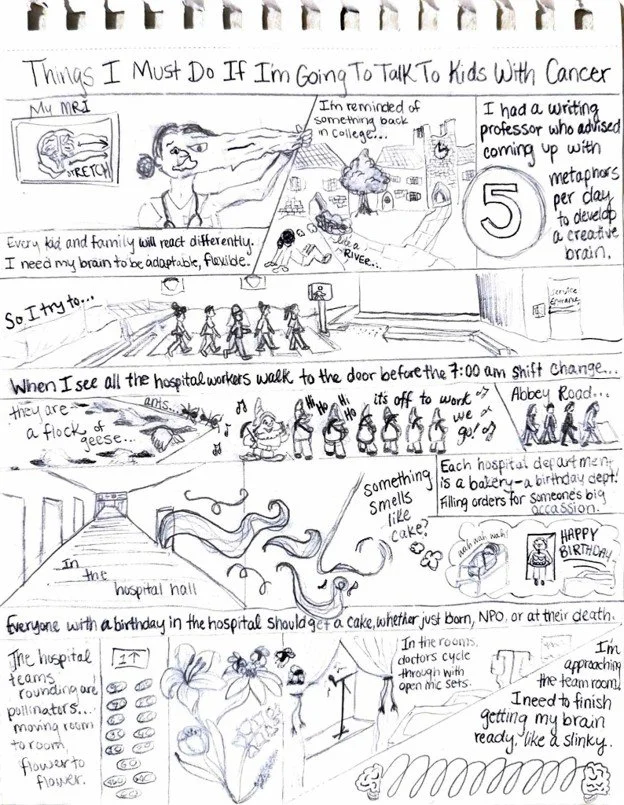 Things I Must Do If I'm Going To Talk To Kids With Cancer
My MRI
STRETCH
Every kid and family will react differently.
I need my brain to be adaptable, fluxible.
I'm reminded of
something back
in college...
like a
RIVER...
I had a writing
professor who advised
coming up with
5
metaphors
per day
to develop
a creative
brain.
So I try to...
Service
Entrance
When I see all the hospital workers walk to the door before the 7:00 am shift change...
they are
a flock of
geese...
ants...
Hi
Ho
Hi
Ho
it's off to work
we
go!
Abbey Road...
In
the
hospital hall
something
smells
like
cake?
Each hospital department
is a bakery - a birthday dept!
Filling orders for someone's big
occassion.
wah wah wah!
HAPPY
BIRTHDAY
Everyone with a birthday in the hospital should get a cake, whether just born, NPO, or at their death.
The hospital
teams
rounding are
pollinators...
moving room
to room,
flower to
flower.
1↑
In the rooms,
doctors cycle
through with
open mic sets.
I'm
approaching
the team room!
I need to finish
getting my brain
ready, like a slinky.